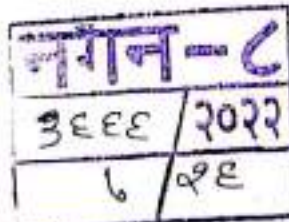 नगन - ८
३६६६ / २०२२
७ / २६